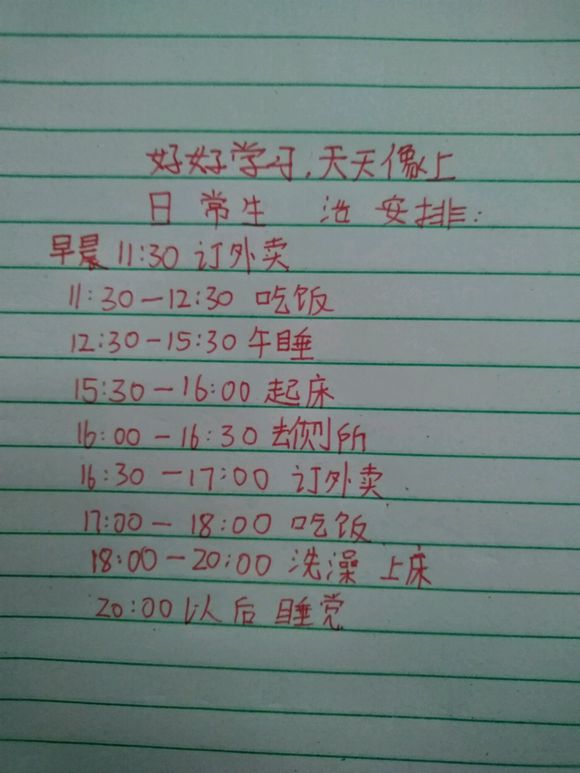 好好学习,天天像上
日常生 活 安排:
早晨 11:30 订外卖
11:30—12:30 吃饭
12:30—15:30 午睡
15:30—16:00 起床
16:00—16:30 去侧所
16:30—17:00 订外卖
17:00—18:00 吃饭
18:00—20:00 洗澡 上床
20:00以后 睡觉